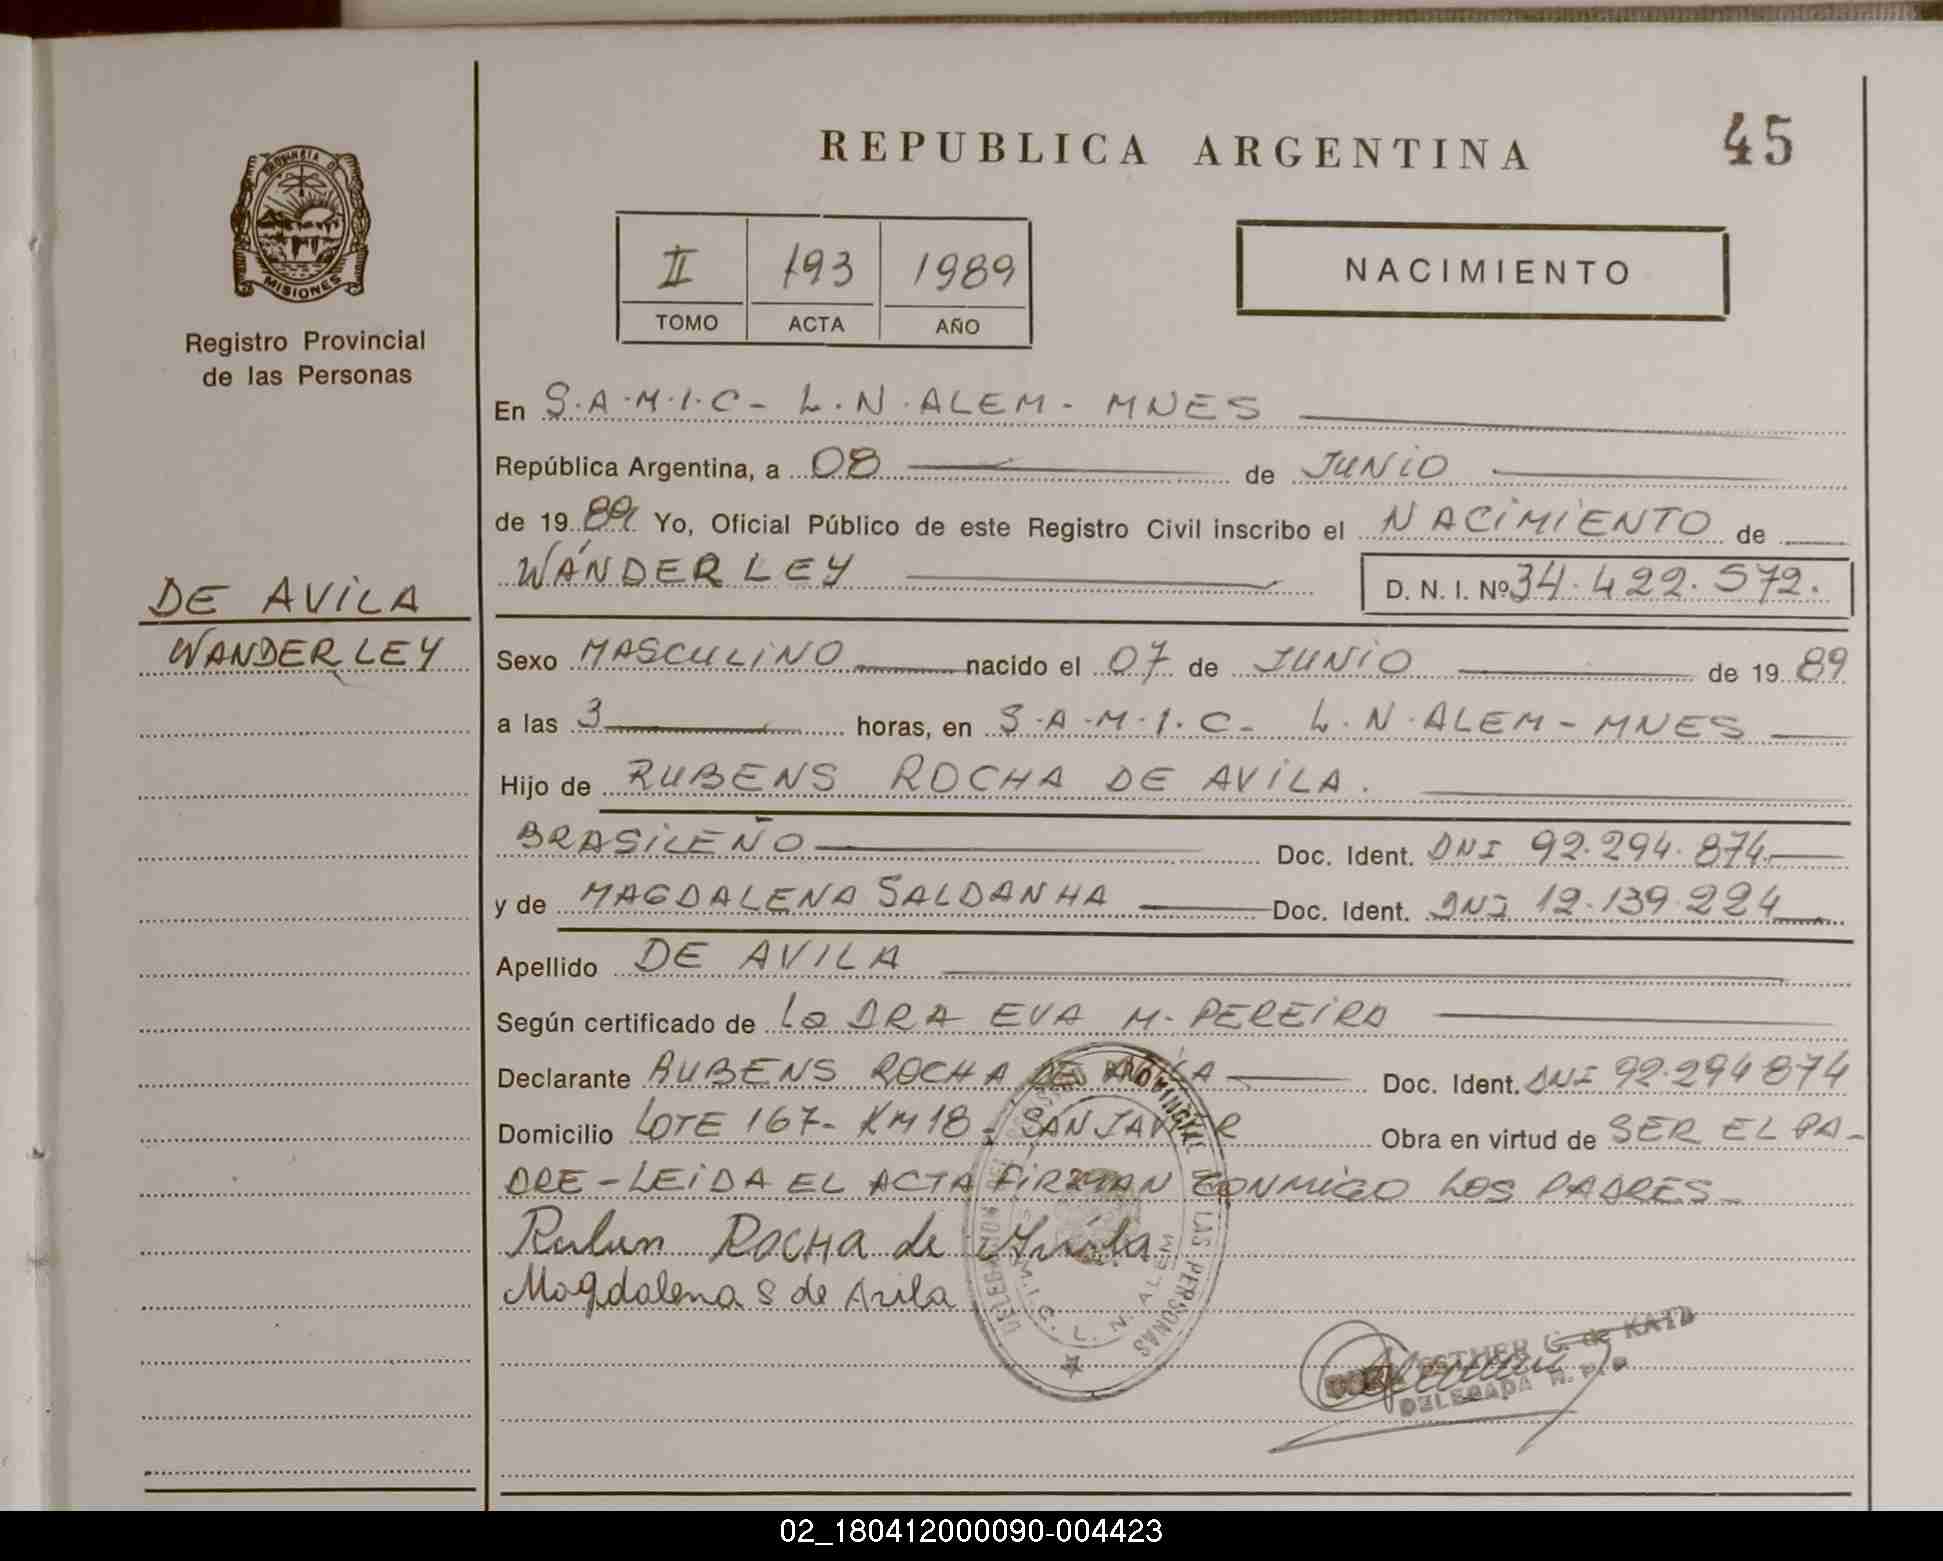 REPUBLICA ARGENTINA
45
PROVINCIA DE
MISIONES
Registro Provincial
de las Personas
II 193 1989
TOMO ACTA AÑO
NACIMIENTO
En S.A.M.I.C - L.N.ALEM - MNES
República Argentina, a 08 de JUNIO
de 19 89 Yo, Oficial Público de este Registro Civil inscribo el NACIMIENTO de
WÁNDERLEY
D. N. I. Nº 34.422.572.
DE AVILA
WANDERLEY
Sexo MASCULINO nacido el 07 de JUNIO de 19 89
a las 3 horas, en S.A.M.I.C - L.N.ALEM - MNES
Hijo de RUBENS ROCHA DE AVILA.
BRASILEÑO Doc. Ident. DNI 92.294.874
y de MAGDALENA SALDANHA Doc. Ident. DNI 12.139.224
Apellido DE AVILA
Según certificado de La DRA EVA M. PEREIRA
Declarante RUBENS ROCHA DE AVILA Doc. Ident. DNI 92.294874
Domicilio LOTE 167 - KM 18 - SAN JAVIER Obra en virtud de SER EL PA-
DRE - LEIDA EL ACTA FIRMAN CONMIGO LOS PADRES -
Ruben ROCHA de Avila
Magdalena S de Avila
PROVINCIAL DE LAS PERSONAS
S.A.M.I.C. L. N. ALEM
ESTHER G. de KATZ
DELEGADA R. P. P.
02_180412000090-004423